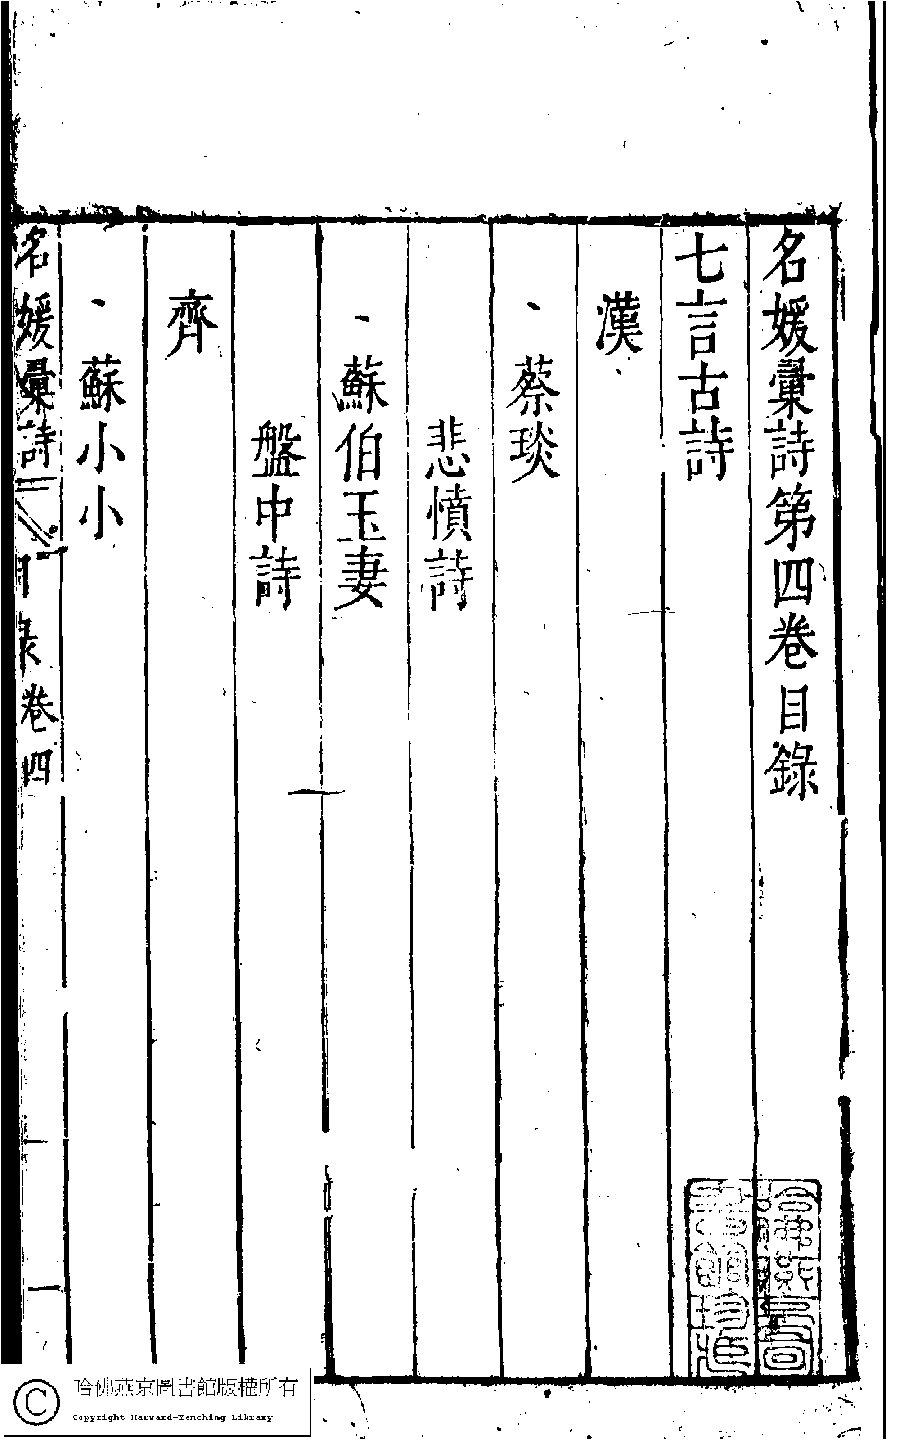 名媛彙詩第四卷目錄
七言古詩
漢
、蔡琰
悲憤詩
、蘇伯玉妻
盤中詩
齊
、蘇小小
名媛彙詩 目录卷四 一
哈佛燕京圖書館版權所有
Copyright Harvard-Yenching Library